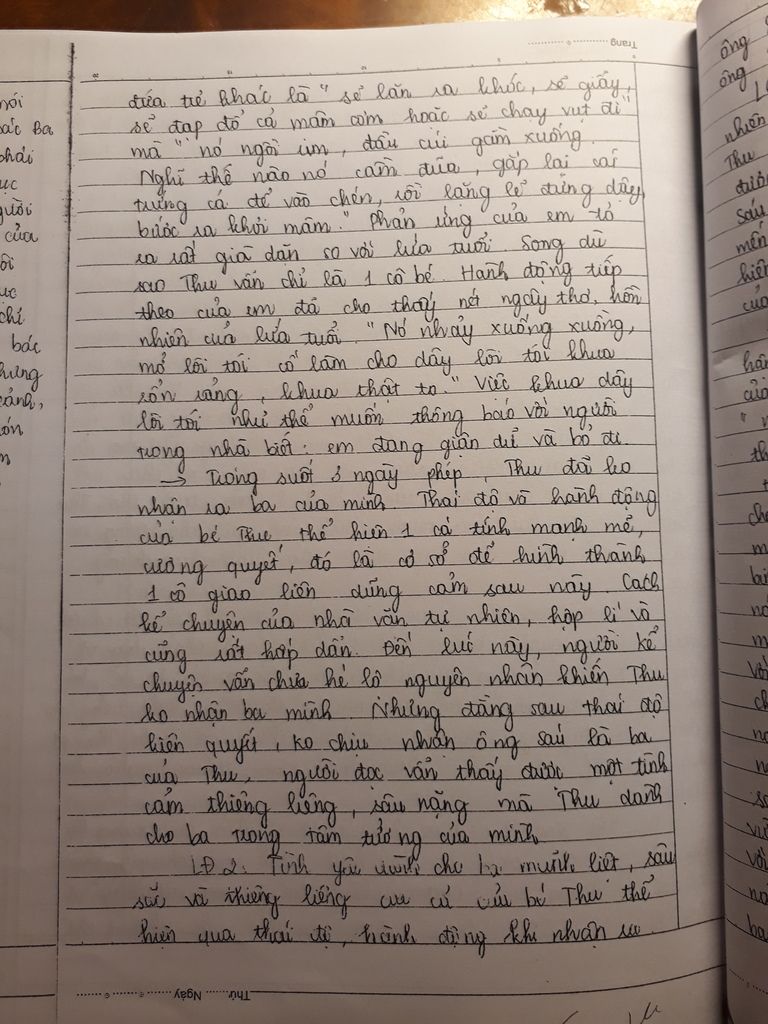 đứa trẻ khác là "sẽ lăn ra khóc, sẽ giẫy,
sẽ đạp đổ cả mâm cơm hoặc sẽ chạy vụt đi"
mà "nó ngồi im, đầu cúi gằm xuống.
Nghĩ thế nào nó cầm đũa, gắp lại cái
trứng cá để vào chén, rồi lặng lẽ đứng dậy,
bước ra khỏi mâm." Phản ứng của em tỏ
ra rất già dặn so với lứa tuổi. Song dù
sao Thu vẫn chỉ là 1 cô bé. Hành động tiếp
theo của em đã cho thấy nét ngây thơ, hồn
nhiên của lứa tuổi. "Nó nhảy xuống xuồng,
mở lòi tói cố làm cho dây lòi tói khua
rổn rảng, khua thật to." Việc khua dây
lòi tói như thể muốn thông báo với người
trong nhà biết: em đang giận dữ và bỏ đi.
→ Trong suốt 3 ngày phép, Thu đã ko
nhận ra ba của mình. Thái độ và hành động
của bé Thu thể hiện 1 cá tính mạnh mẽ,
cương quyết, đó là cơ sở để hình thành
1 cô giao liên dũng cảm sau này. Cách
kể chuyện của nhà văn tự nhiên, hợp lí và
cũng rất hấp dẫn. Đến lúc này, người kể
chuyện vẫn chưa hé lộ nguyên nhân khiến Thu
ko nhận ba mình. Nhưng đằng sau thái độ
kiên quyết, ko chịu nhận ông Sáu là ba
của Thu, người đọc vẫn thấy được một tình
cảm thiêng liêng, sâu nặng mà Thu dành
cho ba trong tâm tưởng của mình
LĐ 2: Tình yêu dành cho ba mãnh liệt, sâu
sắc và thiêng liêng của bé Thu thể
hiện qua thái độ, hành động khi nhận ra
Trang
Thứ Ngày